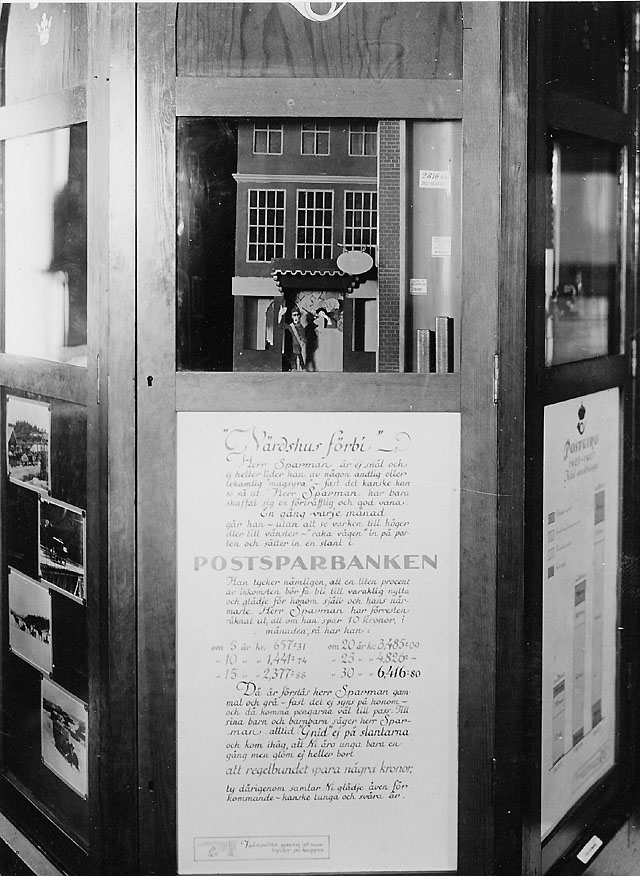 "Värdshus förbi"
Herr Sparman är ej snål och
ej heller lider han av någon andlig eller
lekamlig "magsyra" - fast det kanske kan
se så ut. Herr Sparman har bara
skaffat sig en förträfflig och god vana.
En gång varje månad
går han - utan att se varken till höger
eller till vänster - "raka vägen" in på pos-
ten och sätter in en slant i
POSTSPARBANKEN
Han tycker nämligen, att en liten procent
av inkomsten bör få bli till varaklig nytta
och glädje för honom själv och hans när-
maste. Herr Sparman har förresten
räknat ut, att om han spar 10 kronor, i
månaden, så har han:
om 5 år kr. 657:31 om 20 år kr. 3,485:09
" 10 " " 1,441:74 " 25 " " 4,826:-
" 15 " " 2,377:88 " 30 " " 6,416:80
Då är förstås herr Sparman gam-
mal och grå - fast det ej syns på honom -
och då komma pengarna väl till pass. Till
sina barn och barnbarn säger herr Spar-
man alltid: "Gnid" ej på slantarna
och kom ihåg, att Ni äro unga bara en
gång men glöm ej heller bort
att regelbundet spara några kronor,
ty därigenom samlar Ni glädje även för
kommande - kanske tunga och svåra år.
Igångsättes genom att man
trycker på knappen
POSTGIRO
1925-1947